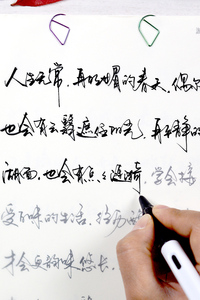 人生无常,再明媚的春天,偶尔
也会有云翳遮住阳光,再平静的
湖面,也会有点点涟漪,学会接
受不同的生活,经历
才会更韵味悠长。